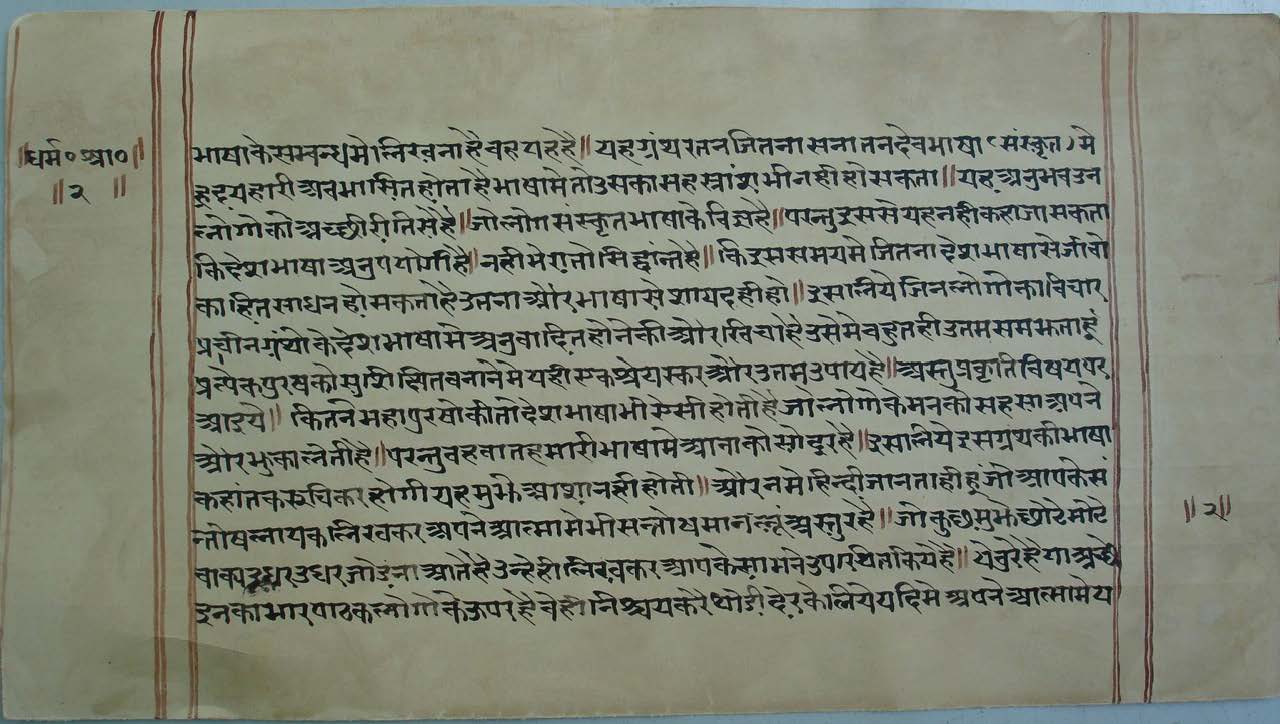 ॥धर्म॰आ॰॥
॥२॥
भाषा के सम्बन्ध मे लिखना है वह यह है॥ यह ग्रंथ रतन जितना सनातन देव भाषा (संस्कृत) मे
हृदयहारी अवभासित होता है भाषा मे तो उसका सहस्त्रांश भी नही हो सकता॥ यह अनुभव उन
लोगो को अच्छी रीति से है॥ जो लोग संस्कृत भाषा के विज्ञ है॥ परन्तु इससे यह नही कहा जा सकता
कि देश भाषा अनुपयोगी है॥ नही मेरा तो सिद्धांत है॥ कि इस समय मे जितना देश भाषा से जीवो
का हित साधन हो सकता है उतना और भाषा से शायद ही हो॥ इसलिये जिन लोगो का विचार
प्रचीन ग्रंथो के देश भाषा मे अनुवादित होने की और खिचा है उसे मे बहुत ही उतम समझता हूं
प्रत्येक पुरष को सुशिक्षित बनाने मे यही एक श्रेयस्कर और उतम उपाय है॥ अस्तु प्रकृति विषय पर
आइये॥ कितने महापुरषो की तो देश भाषा भी ऐसी होती है जो लोगो के मन को सहसा अपने
और झुका लेती है॥ परन्तु वह बात हमारी भाषा मे आना कोसो दूर है॥ इसलिये इस ग्रंथ की भाषा
कहां तक रुचिकर होगी यह मुझे आशा नही होती॥ और न मे हिन्दी जानता ही हूं जो आपके सं
न्तोष लायक लिखकर अपने आत्मा मे भी सन्तोष मान लूं अस्तु रहे॥ जो कुछ मुझे छोटे मोटे
वाक्य इधर उधर जोडना आते है उन्हे ही लिखकर आपके सामने उपस्थित किये है॥ ये बुरे है या अछे
इनका भार पाठक लोगो के ऊपर है वेही निश्चय करे थोडी देर के लिये यदि मे अपने आत्मा मे य
॥२॥